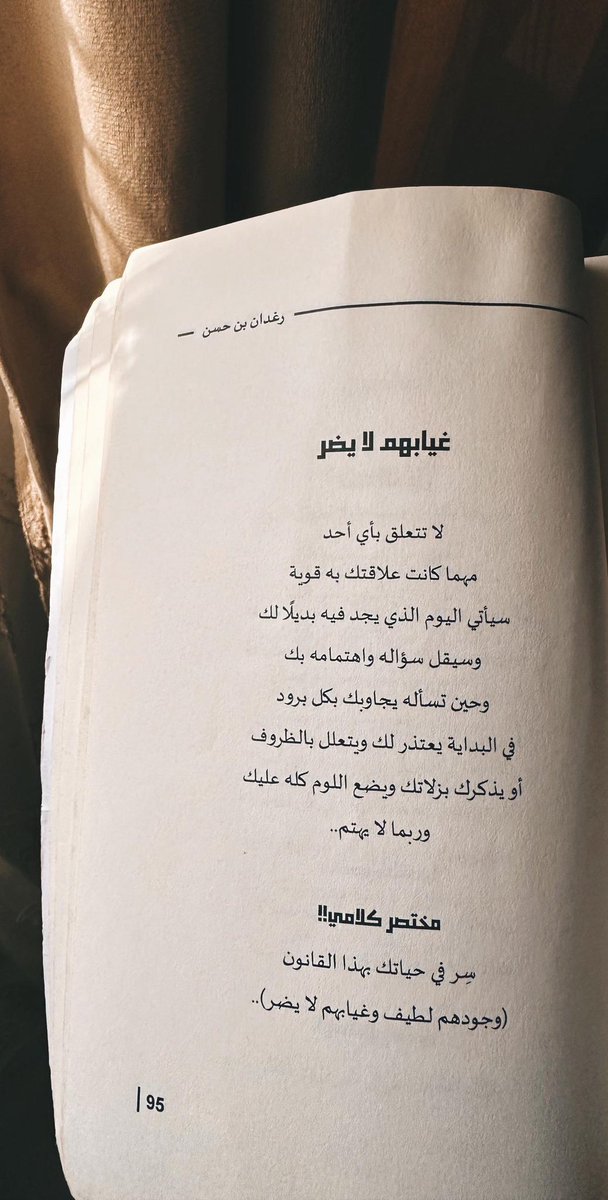 رغدان بن حسن
غيابهم لا يضر
لا تتعلق بأي أحد
مهما كانت علاقتك به قوية
سيأتي اليوم الذي يجد فيه بديلًا لك
وسيقل سؤاله واهتمامه بك
وحين تسأله يجاوبك بكل برود
في البداية يعتذر لك ويتعلل بالظروف
أو يذكرك بزلاتك ويضع اللوم كله عليك
وربما لا يهتم..
مختصر كلامي!!
سِر في حياتك بهذا القانون
(وجودهم لطيف وغيابهم لا يضر)..
95 |